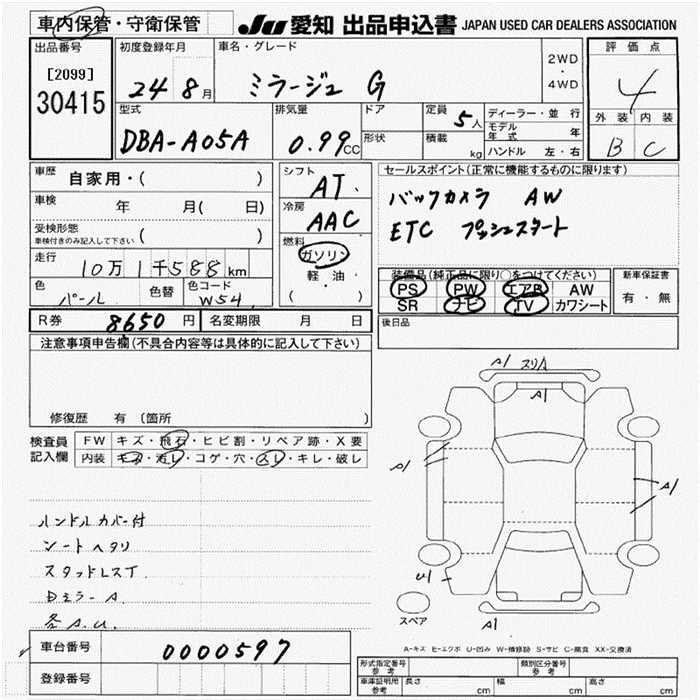 車内保管・守衛保管 JU 愛知 出品申込書 JAPAN USED CAR DEALERS ASSOCIATION
出品番号 初度登録年月 車名・グレード 2WD・4WD 評価点
[2099] 30415 24 8月 ミラージュ G 4
型式 排気量 ドア 定員 ディーラー・並行 外装 内装
DBA-A05A 0.99CC 形状 5人 積載 kg モデル年式 年 ハンドル 左・右 B C
車歴 自家用・( ) シフト AT セールスポイント(正常に機能するものに限ります)
車検 年 月( 日) 冷房 AAC バックカメラ AW
受検形態 車検付きのみ記入して下さい ( ) 燃料 ガソリン ETC プッシュスタート
走行 10万1千588km 軽油・( ) 装備品(純正品に限り○をつけてください) 新車保証書
色 パール 色替 色コード W54 PS PW エアB AW 有・無
SR ナビ TV カワシート
R券 8650円 名変期限 月 日 後日品
注意事項申告欄(不具合内容等は具体的に記入して下さい)
A1 スリA
A1
修復歴 有 (箇所 )
検査員記入欄 FW キズ・飛石・ヒビ割・リペア跡・X要
内装 キズ・汚レ・コゲ・穴・スレ・キレ・破レ
A1 A1
ハンドルカバー付
シートヘタリ
スタッドレスT
DミラーA
各A.U.
U1
A1
スペア
A-キズ E-エクボ U-凹み W-補修跡 S-サビ C-腐食 XX-交換済
車台番号 0000597
登録番号
形式指定番号 参考 類別区分番号 参考
車庫証明用 参考 長さ cm 幅 cm 高さ cm